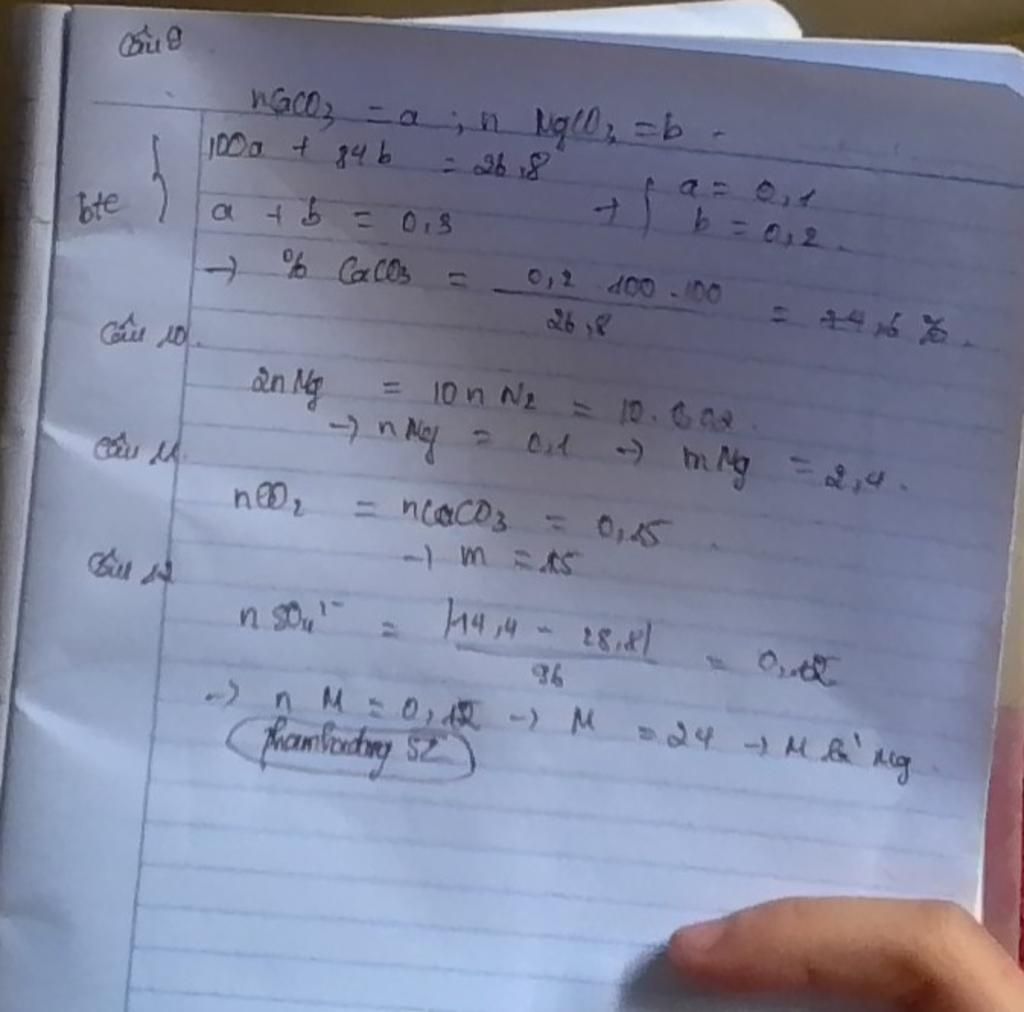 Câu 9
nCaCO3 = a ; n MgCO3 = b
100a + 84b = 26,8
bte
a + b = 0,3 → a = 0,1
b = 0,2
→ % CaCO3 = 0,2 . 100 . 100 / 26,8 = 74,6 %.
Câu 10.
2n Mg = 10 n N2 = 10. 0,02.
→ n Mg = 0,1 → m Mg = 2,4.
Câu 11.
nCO2 = nCaCO3 = 0,15
→ m = 15
Câu 12
n SO4 2- = |14,4 - 28,8| / 96 = 0,15
→ n M = 0,15 → M = 24 → M là Mg